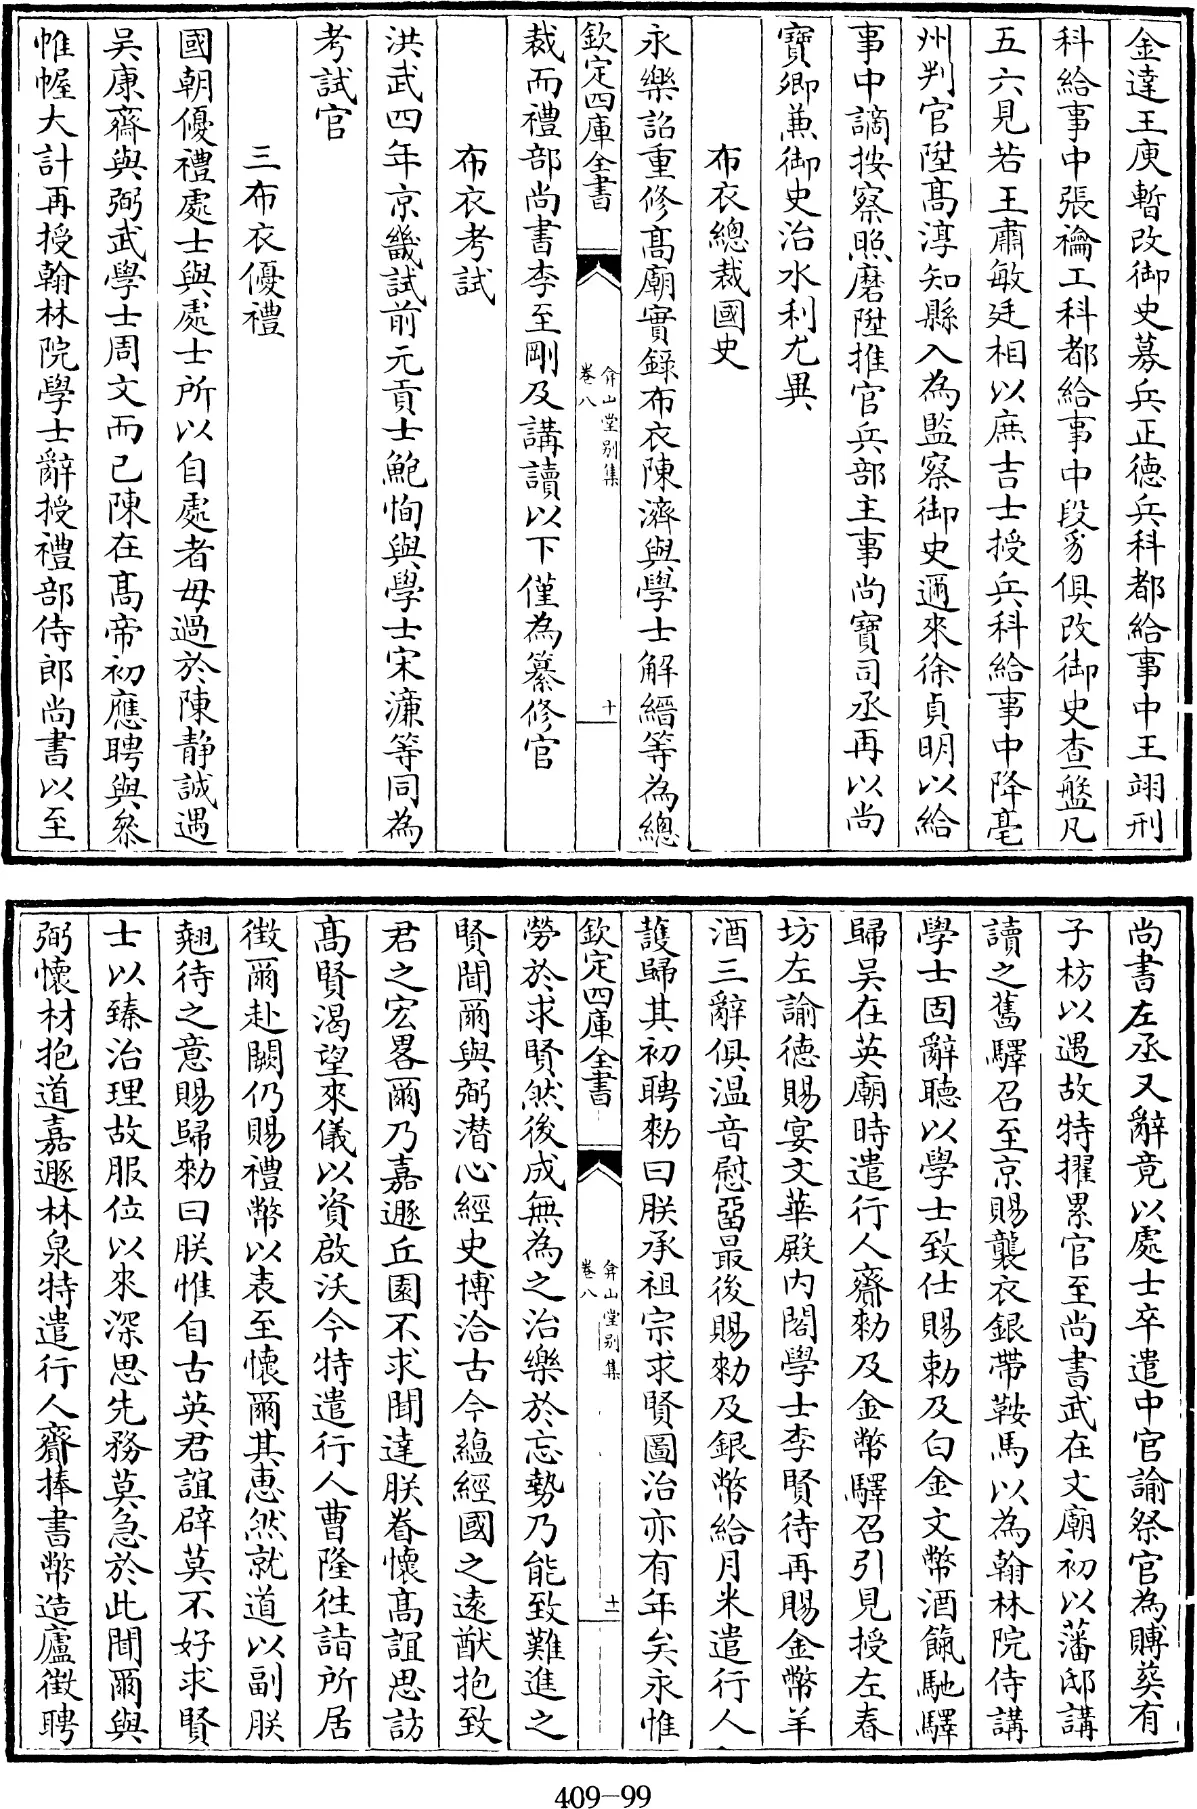 金達王庾暫改御史募兵正德兵科都給事中王翊刑
科給事中張禴工科都給事中段豸俱改御史查盤凡
五六見若王肅敏廷相以庶吉士授兵科給事中降亳
州判官陞髙淳知縣入為監察御史邇來徐貞明以給
事中謫按察照磨陞推官兵部主事尚寶司丞再以尚
寶卿兼御史治水利尤異
布衣總裁國史
永樂詔重修髙廟實録布衣陳濟與學士解縉等為總
欽定四庫全書
弇山堂别集
卷八
十
裁而禮部尚書李至剛及講讀以下僅為纂修官
布衣考試
洪武四年京畿試前元貢士鮑恂與學士宋濂等同為
考試官
三布衣優禮
國朝優禮處士與處士所以自處者毋過於陳静誠遇
吴康齋與弼武學士周文而已陳在髙帝初應聘與叅
帷幄大計再授翰林院學士辭授禮部侍郎尚書以至
尚書左丞又辭竟以處士卒遣中官諭祭官為賻葬有
子枋以遇故特擢累官至尚書武在文廟初以藩邸講
讀之舊驛召至京賜襲衣銀帶鞍馬以為翰林院侍講
學士固辭聽以學士致仕賜勅及白金文幣酒餼馳驛
歸吴在英廟時遣行人齎勑及金幣驛召引見授左春
坊左諭德賜宴文華殿内閣學士李賢待再賜金幣羊
酒三辭俱温音慰畱最後賜勑及銀幣給月米遣行人
護歸其初聘勑曰朕承祖宗求賢圖治亦有年矣永惟
欽定四庫全書
弇山堂别集
卷八
十一
勞於求賢然後成無為之治樂於忘勢乃能致難進之
賢聞爾與弼潜心經史博洽古今藴經國之遠猷抱致
君之宏畧爾乃嘉遯丘園不求聞達朕眷懷髙誼思訪
髙賢渴望來儀以資啟沃今特遣行人曹隆徃詣所居
徴爾赴闕仍賜禮幣以表至懷爾其惠然就道以副朕
翹待之意賜歸勑曰朕惟自古英君誼辟莫不好求賢
士以臻治理故服位以來深思先務莫急於此聞爾與
弼懷材抱道嘉遯林泉特遣行人齎捧書幣造廬徴聘
409-99